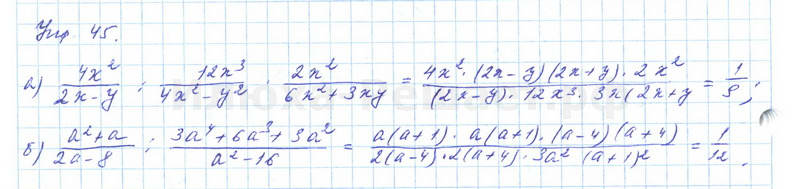 Упр 45.
а) 4x²/(2x-y) : 12x³/(4x²-y²) · 2x²/(6x²+3xy) = 4x²·(2x-y)(2x+y)·2x²/((2x-y)·12x³·3x(2x+y = 1/9;
б) (a²+a)/(2a-8) : (3a⁴+6a³+3a²)/(a²-16) = a(a+1)·a(a+1)·(a-4)(a+4)/(2(a-4)·2(a+4)·3a²(a+1)² = 1/12.